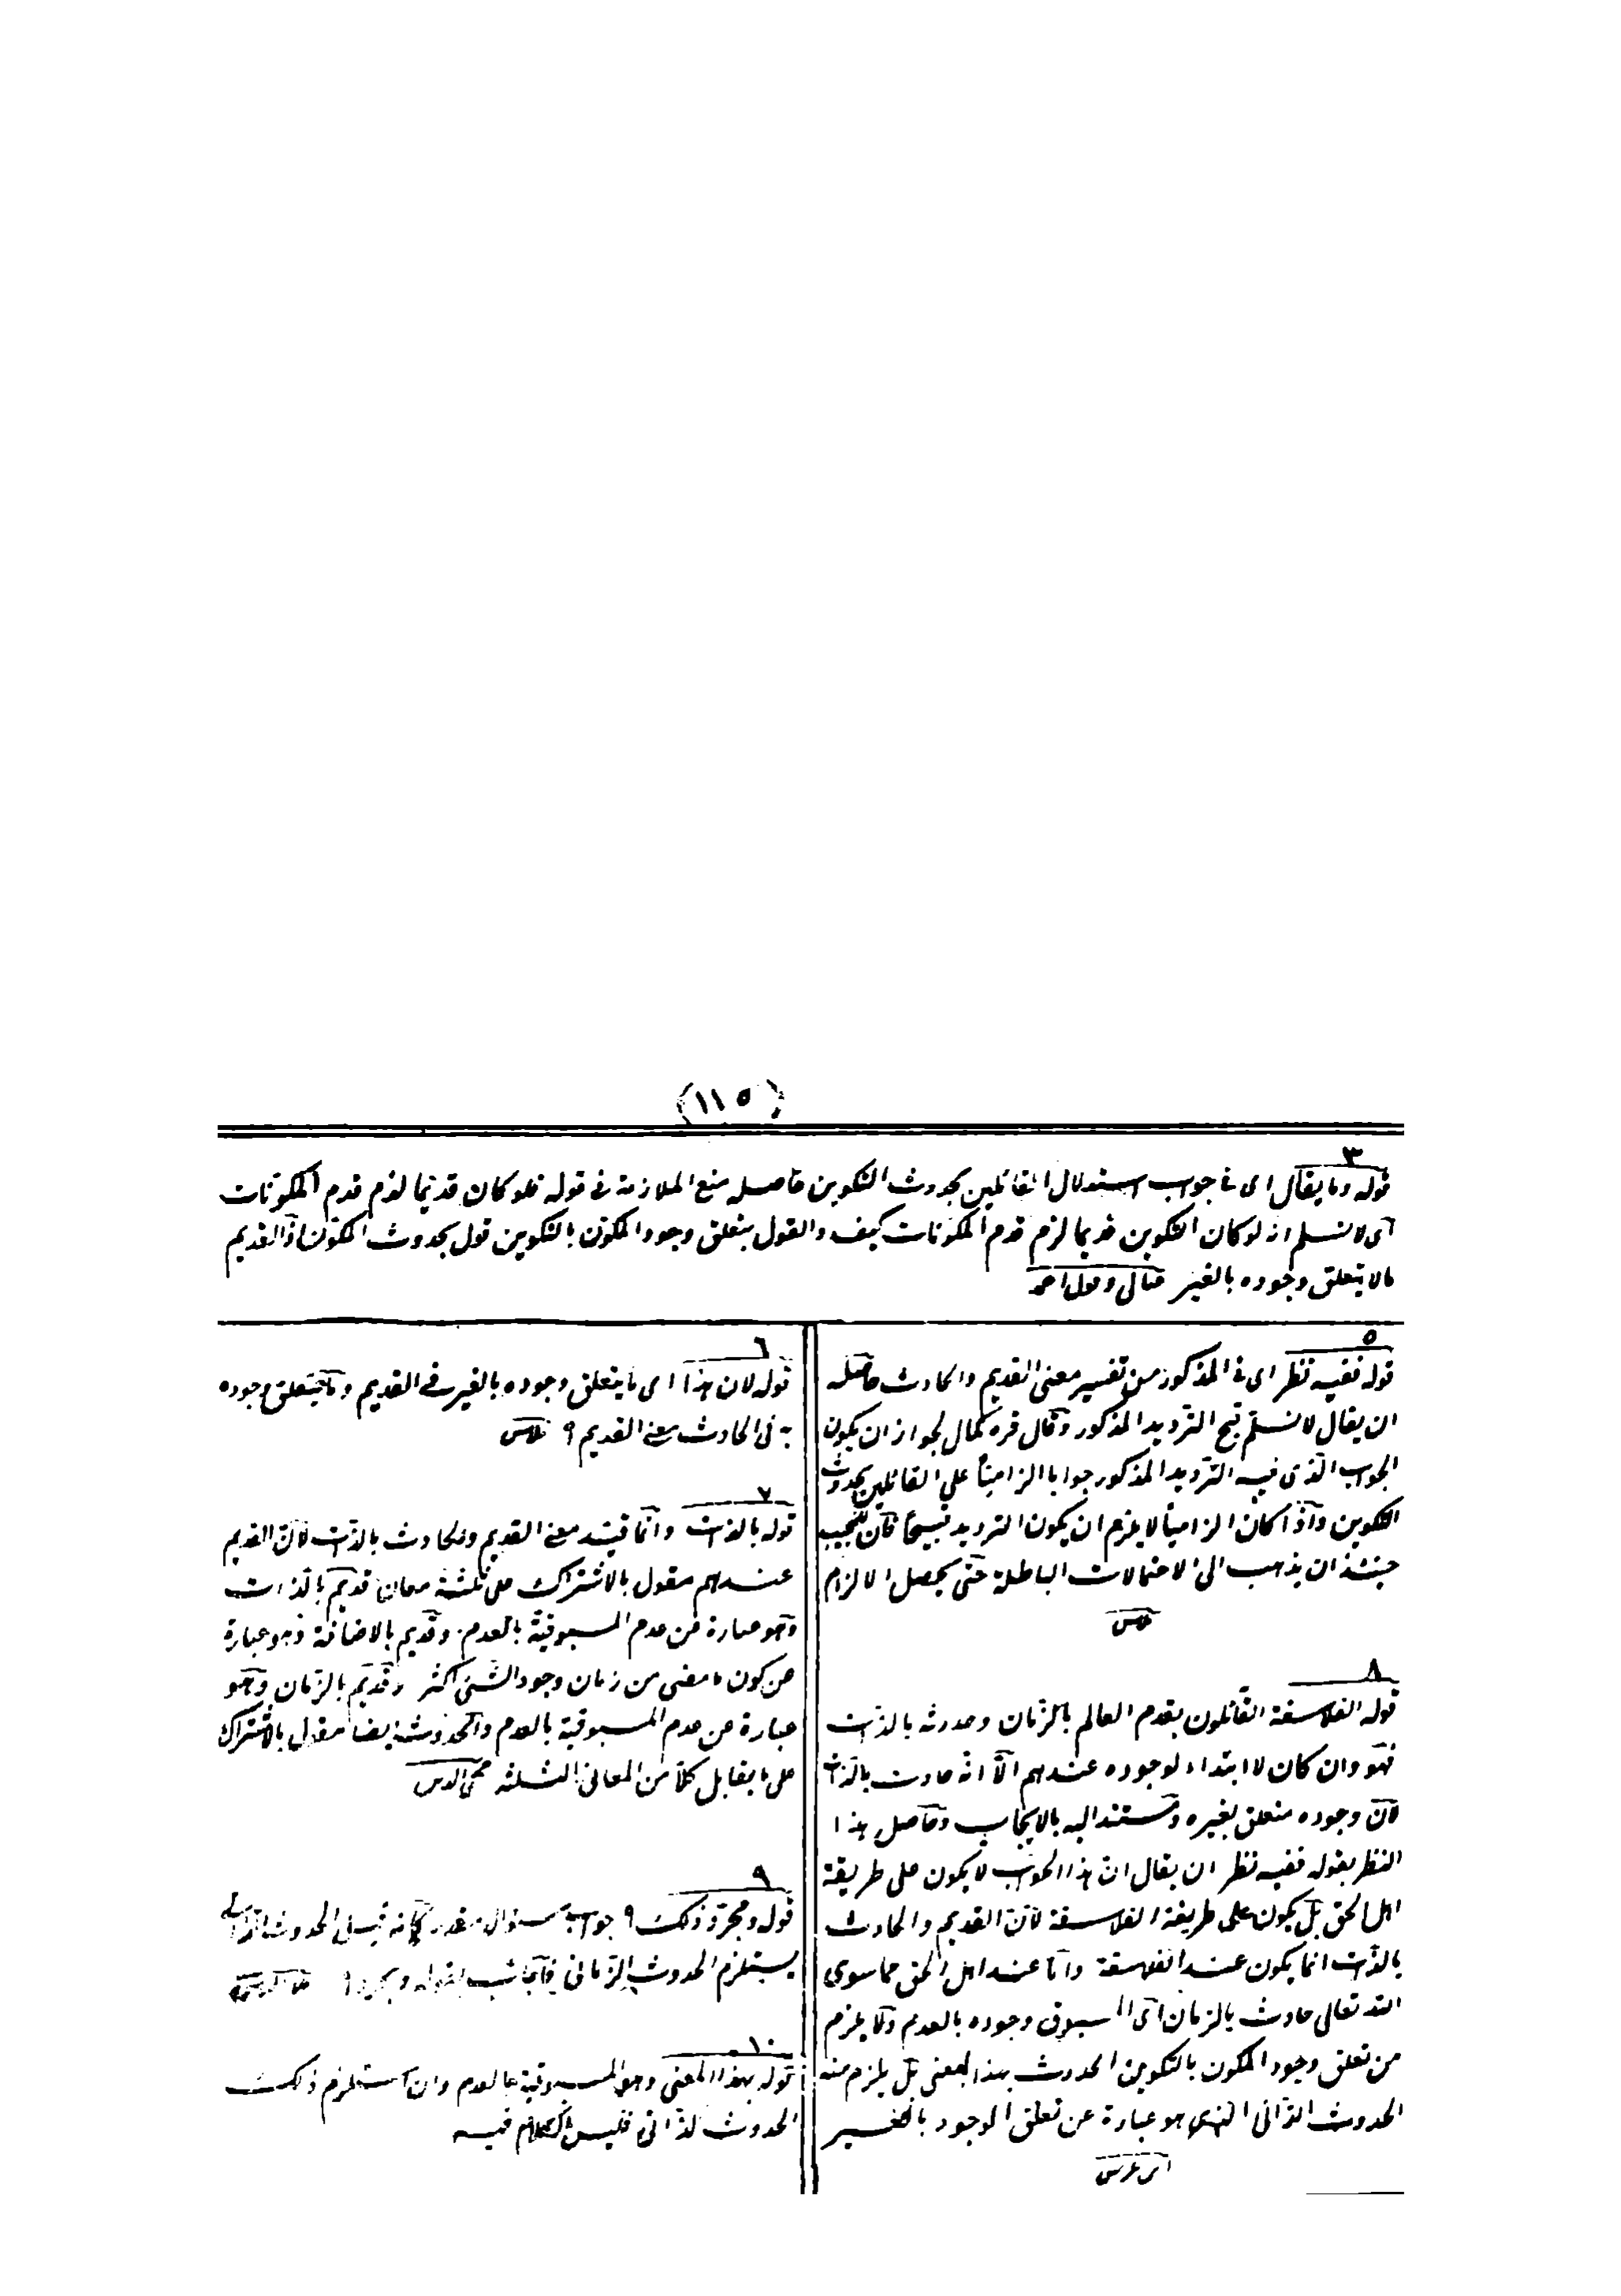 (١١٥)
٣
قوله وما يقال اى فى جواب استدلال القائلين بحدوث التكوين حاصله منع الملازمة فى قوله فلو كان قديما لزم قدم المكونات
اى لا نسلم انه لو كان التكوين قديما لزم قدم المكونات كيف والقول بتعلق وجود المكون بالتكوين قول بحدوث المكون اذ القديم
ما لا يتعلق وجوده بالغير خيالى وقول احمد
٥
قوله ففيه نظر اى فى المذكور من تفسير معنى القديم والحادث حاصله
ان يقال لا نسلم قبح الترديد المذكور وقال قره كمال لجواز ان يكون
الجواب الذى فيه الترديد المذكور جوابا الزاميا على القائلين بحدوث
التكوين واذا كان الزاميا لا يلزم ان يكون الترديد قبيحا فان للمجيب
حينئذ ان يذهب الى الاحتمالات الباطلة حتى يحصل الالزام
٨
قوله الفلاسفة القائلون بقدم العالم بالزمان وحدوثه بالذات
فهو وان كان لا ابتداء لوجوده عندهم الا انه حادث بالذات
لان وجوده متعلق بغيره ومستند اليه بالايجاب وحاصل هذا
النظر بقوله ففيه نظر ان يقال ان هذا الجواب لا يكون على طريقة
اهل الحق بل يكون على طريقة الفلاسفة لان القديم والحادث
بالذات انما يكون عند الفلاسفة واما عند اهل الحق فما سوى
الله تعالى حادث بالزمان اى المسبوق وجوده بالعدم ولا يلزم
من تعلق وجود المكون بالتكوين الحدوث بهذا المعنى بل يلزم منه
الحدوث الذاتى الذى هو عبارة عن تعلق الوجود بالغير
ابن غرس
٦
قوله لان هذا اى ما يتعلق وجوده بالغير فى القديم وما يتعلق وجوده
به فى الحادث معنى القديم ٩
٧
قوله بالذات وانما قيد معنى القديم والحادث بالذات لان القديم
عندهم مقول بالاشتراك على ثلثة معان قديم بالذات
وهو عبارة عن عدم المسبوقية بالعدم وقديم بالاضافة وهو عبارة
عن كون ما مضى من زمان وجود الشئ اكثر وقديم بالزمان وهو
عبارة عن عدم المسبوقية بالعدم والحدوث ايضا مقول بالاشتراك
على ما يقابل كلا من المعانى الثلثه محى الدين
٩
قوله ومجرد ذلك ٩ جواب سؤال مقدر كانه قيل الحدوث الذاتى
يستلزم الحدوث الزمانى فاجاب بقوله ومجرد ٩
١٠
قوله بهذا المعنى وهو المسبوقية بالعدم وان استلزم ذلك
الحدوث الذاتى فليس الكلام فيه